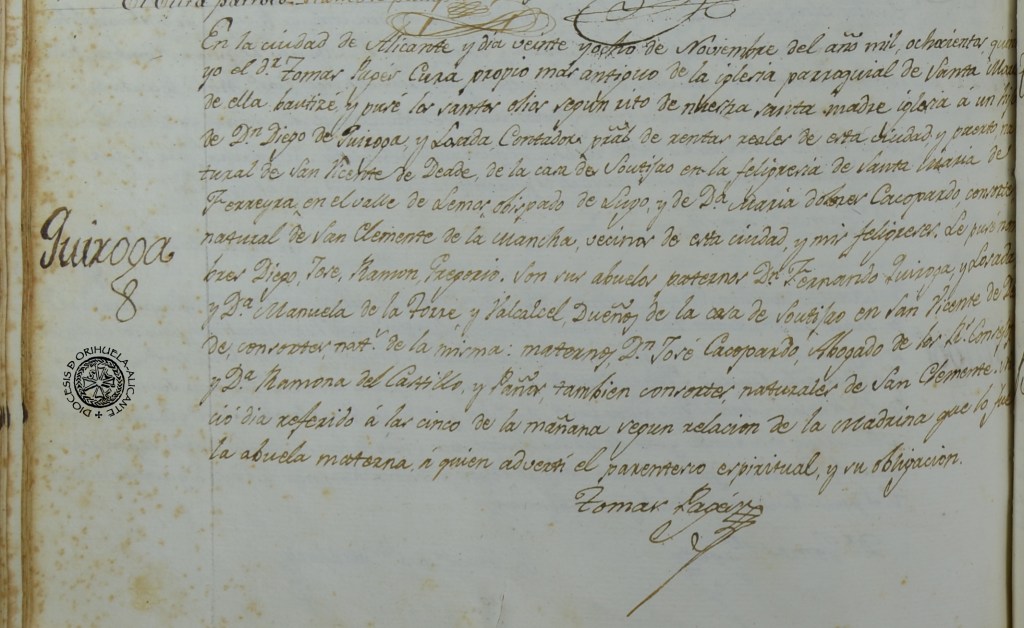 El Cura párroco
En la ciudad de Alicante y dia veinte y ocho de Noviembre del año mil, ochocientos
yo el Dr. Tomas Pagés Cura propio mas antiguo de la iglesia parroquial de Santa Maria
de ella bautizé, y pusé los santos olios segun rito de nuestra santa madre iglesia á un hijo
de Dn. Diego de Quiroga, y Losada Contador pral. de rentas reales de esta ciudad, y
tural de San Vicente de Deade, de la casa de Soutijao en la feligresia de Santa Maria de
Ferreyra, en el valle de Lemos obispado de Lugo, y de Da. Maria dolores Cacopardo, consortes
natural de San Clemente de la Mancha, vecinos de esta ciudad, y mis feligreses. Le puse nom
bres Diego, José, Ramon, Gregorio. Son sus abuelos paternos Dn. Fernando Quiroga, y Losada
y Da. Manuela de la Torre y Valcalcel, Dueños de la casa de Soutijao en San Vicente de Dea
de, consortes, nats. de la misma: maternos, Dn. José Cacopardo, Abogado de los Rs. Consejos
y Da. Ramona del Castillo, y Peños, tambien consortes naturales de San Clemente.
ció dia referido á las cinco de la mañana segun relacion de la Madrina que lo fué
la abuela materna, á quien adverti el parentesco espiritual, y su obligacion.
Tomas Pagés
Quiroga
8
DIOCESIS D ORIHUELA-ALICANTE